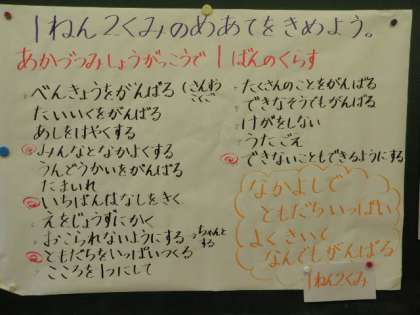 1ねん2くみのめあてをきめよう。
あかづつみしょうがっこうで1ばんのくらす
べんきょうをがんばる
たいいくをがんばる
あしをはやくする
みんなとなかよくする
うんどうかいをがんばる
たまいれ
いちばんはなしをきく
えをじょうずにかく
おこられないようにする ちゃんとする
ともだちをいっぱいつくる
こころを1つにして
たくさんのことをがんばる
できなそうでもがんばる
けがをしない
うたごえ
できないこともできるようにする
なかよしで
ともだちいっぱい
よくきいて
なんでもがんばる
1ねん2くみ